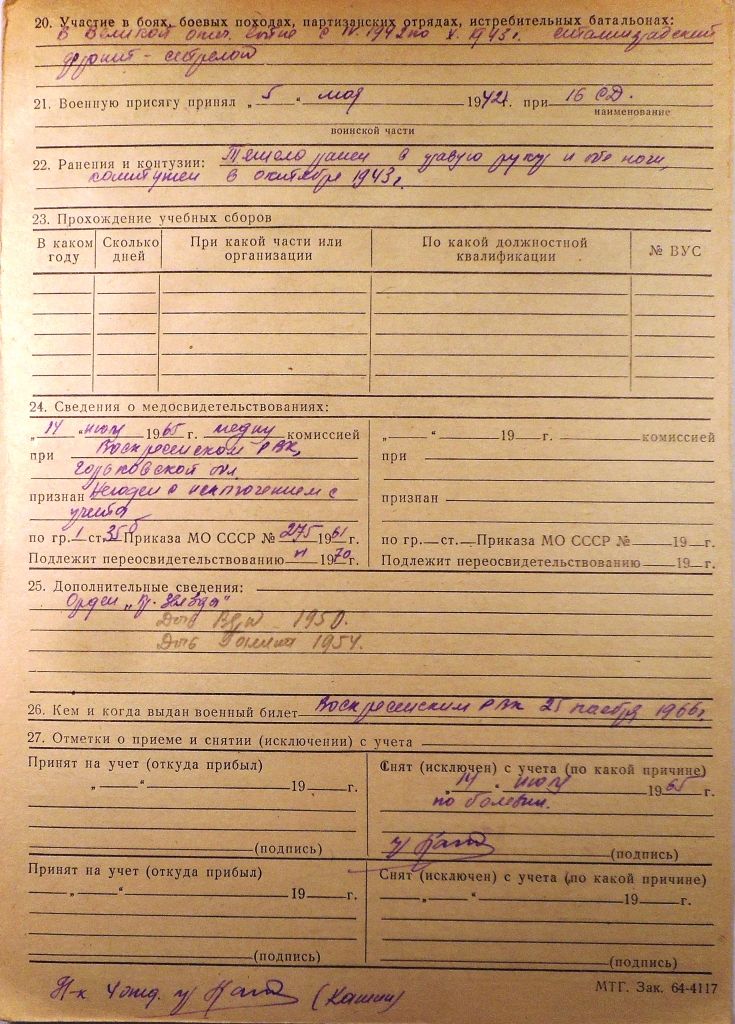 20. Участие в боях, боевых походах, партизанских отрядах, истребительных батальонах:
В Великой отеч. войне с IV. 1942 по X. 1943 г. сталинградский
фронт - стрелок
21. Военную присягу принял „ 5 “ мая 1942 г. при 16 СД.
наименование
воинской части
22. Ранения и контузии: Тяжело ранен в правую руку и обе ноги,
контужен в октябре 1943 г.
23. Прохождение учебных сборов
В каком году
Сколько дней
При какой части или организации
По какой должностной квалификации
№ ВУС
24. Сведения о медосвидетельствованиях:
„ 14 “ июля 1965 г. комиссией
при Воскресенском РВК,
Горьковской обл.
признан Негоден с исключением с
учета
по гр. 1 ст. 35б Приказа МО СССР № 275 1961 г.
Подлежит переосвидетельствованию 1970 г.
„ “ 19 г. комиссией
при
признан
по гр. ст. Приказа МО СССР № 19 г.
Подлежит переосвидетельствованию 19 г.
25. Дополнительные сведения:
Орден „Кр. Звезда“
Дочь 1950.
Дочь 1954.
26. Кем и когда выдан военный билет Воскресенским РВК 25 ноября 1966 г.
27. Отметки о приеме и снятии (исключении) с учета
Принят на учет (откуда прибыл)
„ “ 19 г.
(подпись)
Снят (исключен) с учета (по какой причине)
„ 14 “ июля 1965 г.
по болезни.
(подпись)
Принят на учет (откуда прибыл)
„ “ 19 г.
(подпись)
Снят (исключен) с учета (по какой причине)
„ “ 19 г.
(подпись)
Н-к 4 отд. (Кашин)
МТГ. Зак. 64-4117